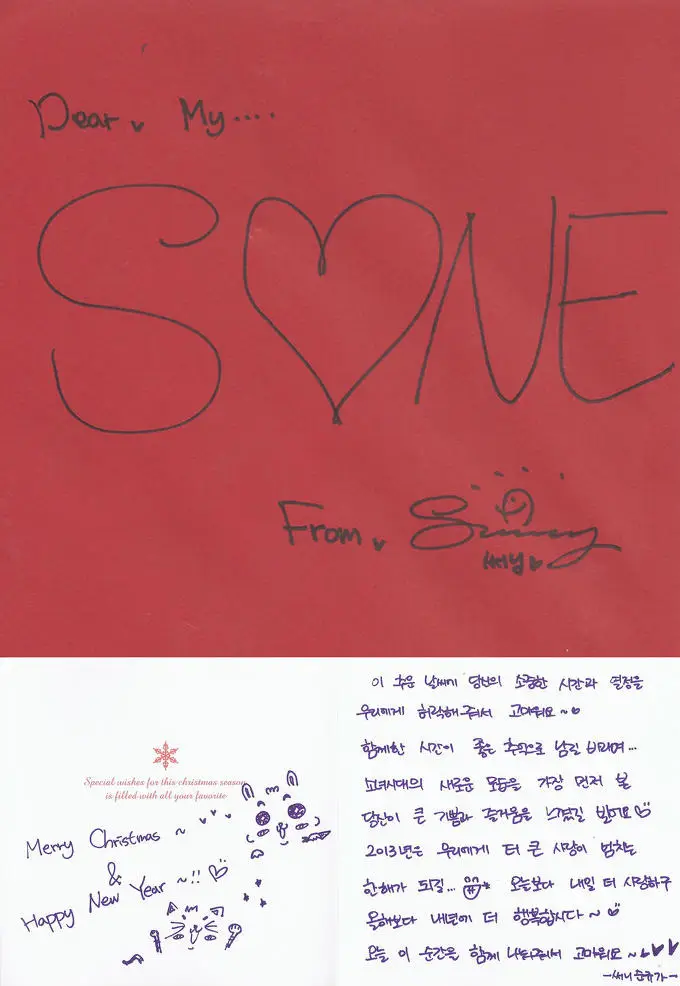 Dear♥ My....
S♥NE
From♥ Sunny
써니♥
Special wishes for this christmas season
is filled with all your favorite
Merry Christmas ~ ♥♥♥
&
Happy New Year ~!! ♡
이 추운 날씨에 당신의 소중한 시간과 열정을
우리에게 허락해 줘서 고마워요~♡
함께한 시간이 좋은 추억으로 남길 바라며...
소녀시대의 새로운 모습을 가장 먼저 볼
당신이 큰 기쁨과 즐거움을 느꼈길 빌어요♡
2013년은 우리에게 더 큰 사랑이 넘치는
한해가 되길... 오늘보다 내일 더 사랑하구
올해보다 내년에 더 행복합시다~♡
오늘 이 순간을 함께 나눠줘서 고마워요~♥♥♥
-써니 순규가-